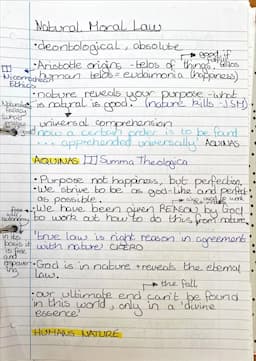 Natural Moral Law
• deontological, absolute
→ good if
• Aristotle origins - telos of things, telos
human telos = eudaimonia (happiness)
Nicomachean
Ethics
• nature reveals your purpose - what
is natural is good. (nature kills - JSM)
Naturalistic
fallacy
universal comprehension
now a certain order is to be found
... apprehended universally' AQUINAS
AQUINAS Summa Theologica
• Purpose not happiness, but perfection.
We strive to be as god-like and perfect
as possible.
• We have been given REASON by God
to work out how to do this from nature
its basis it
is free
and
empower-
ing
'true law is right reason in agreement
with nature' CICERO
• God is in nature + reveals the eternal
law.
→ the fall
• our ultimate end can't be found
in this world, only in a 'divine
essence'
HUMANS NATURE